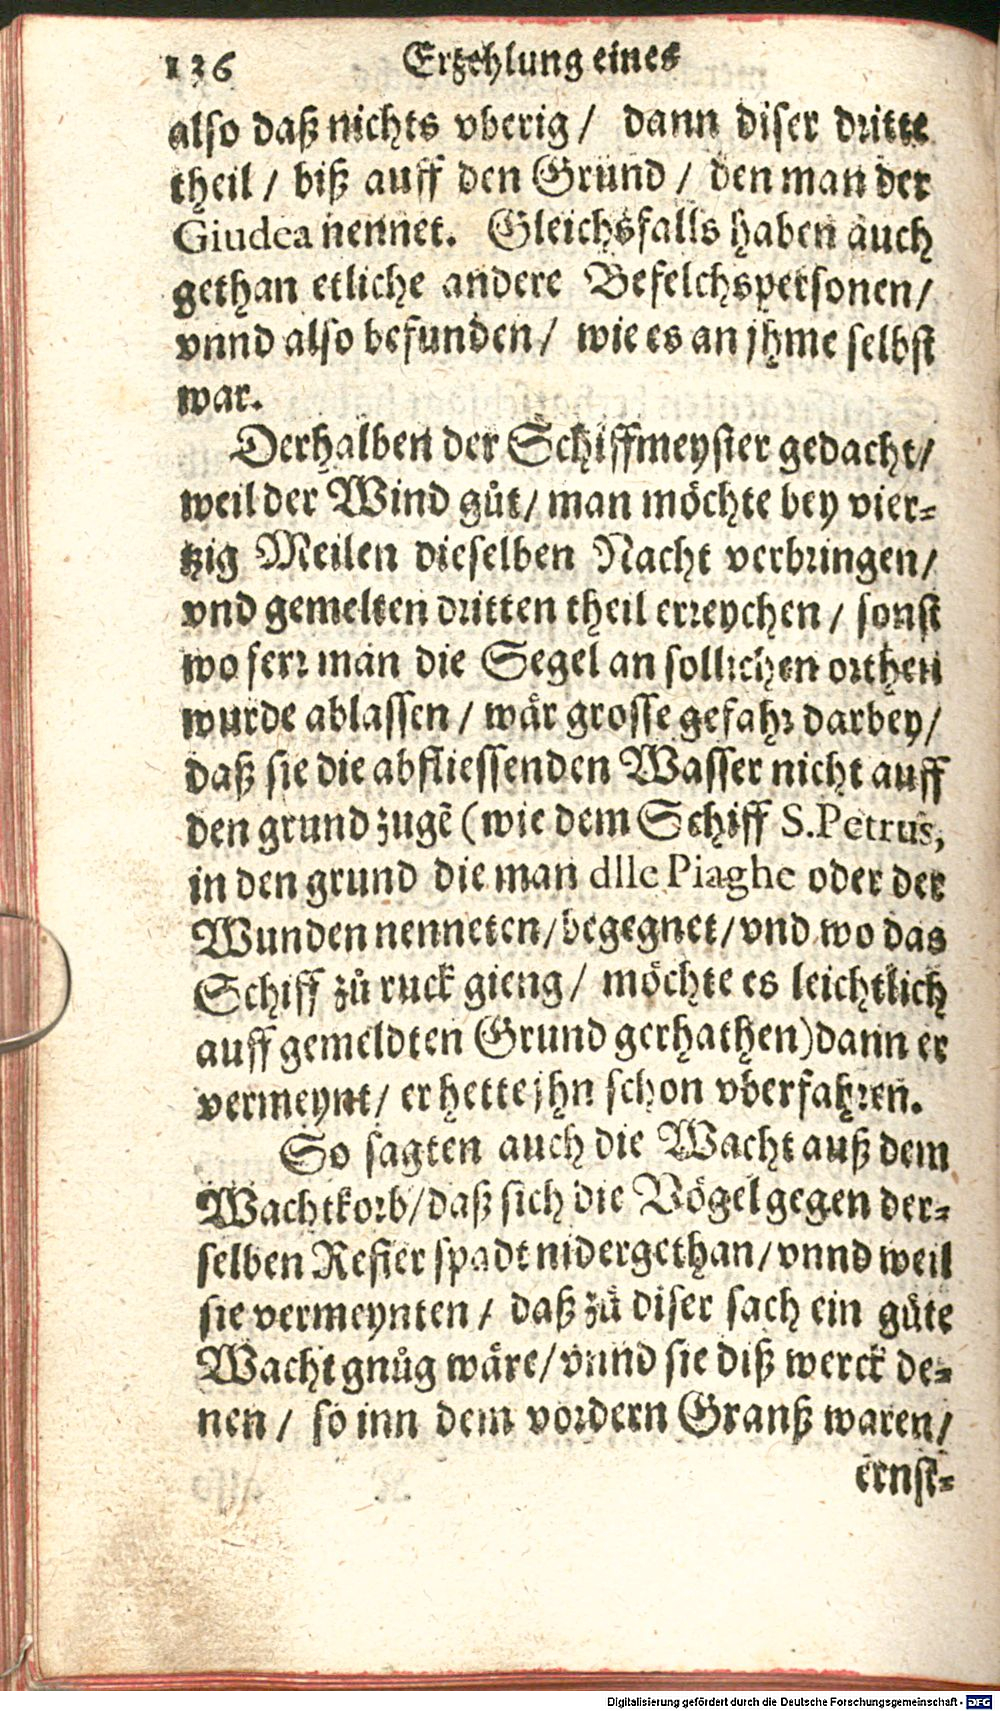 136 Erzehlung eines
also daß nichts vberig / dann diser dritte
theil / biß auff den Grund / den man der
Giudea nennet. Gleichsfalls haben auch
gethan etliche andere Befelchspersonen /
vnnd also befunden / wie es an jhme selbst
war.
Derhalben der Schiffmeyster gedacht /
weil der Wind gůt / man möchte bey vier-
tzig Meilen dieselben Nacht verbringen /
vnd gemelten dritten theil erreychen / sonst
wo ferr man die Segel an sollichen orthen
wurde ablassen / wär grosse gefahr darbey /
daß sie die abfliessenden Wasser nicht auff
den grund zugẽ (wie dem Schiff S. Petrus,
in den grund die man dlle Piaghe oder der
Wunden nenneten / begegnet / vnd wo das
Schiff zů ruck gieng / möchte es leichtlich
auff gemeldten Grund gerhathen) dann er
vermeynt / er hette jhn schon vberfahren.
So sagten auch die Wacht auß dem
Wachtkorb / daß sich die Vögel gegen der-
selben Refier spadt nidergethan / vnnd weil
sie vermeynten / daß zů diser sach ein gůte
Wacht gnůg wäre / vnnd sie diß werck de-
nen / so inn dem vordern Granß waren /
ernst-
Digitalisierung gefördert durch die Deutsche Forschungsgemeinschaft - DFG